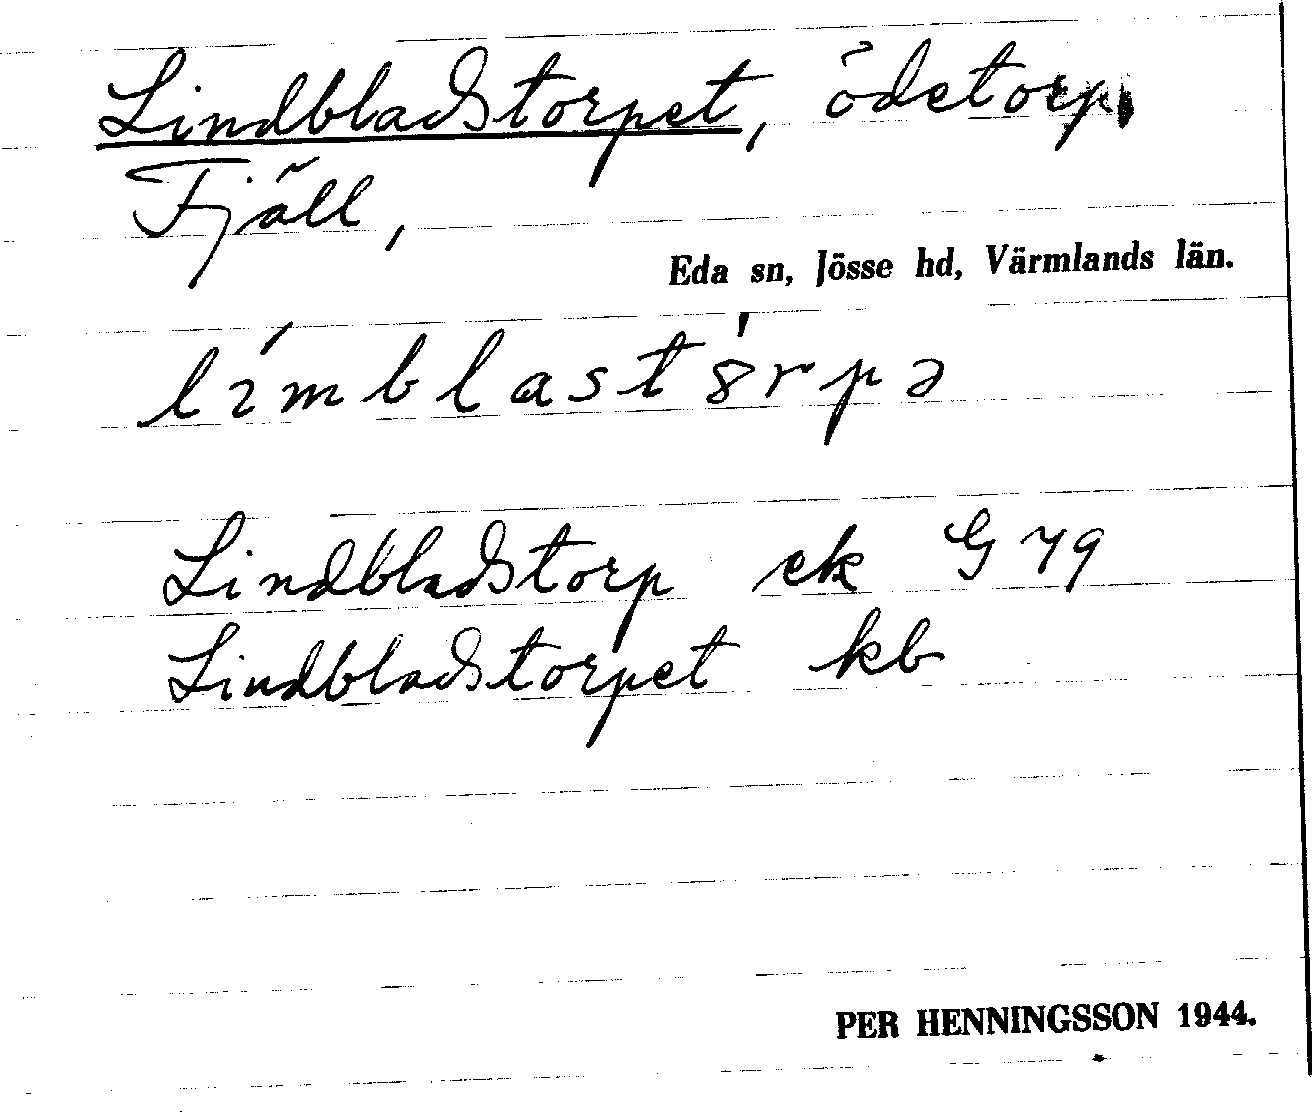 Lindbladstorpet, ödetorp,
Fjäll,
Eda sn, Jösse hd, Värmlands län.
límblastȣ́rpə
Lindbladstorp ek G 79
Lindbladstorpet kb
PER HENNINGSSON 1944.